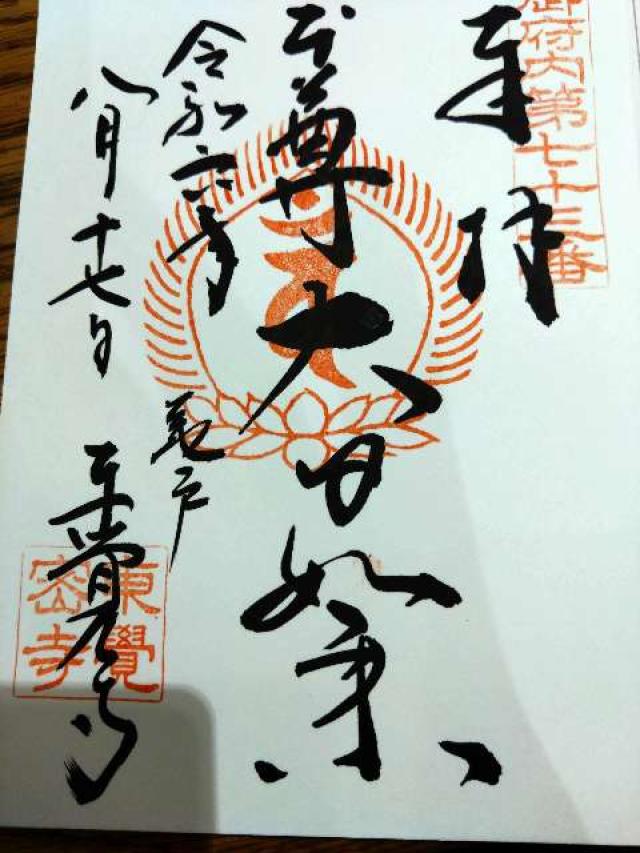 御府内第七十三番
奉拝
本尊大日如来
令和六年
八月十七日
亀戸
東覺寺
東覺
密寺